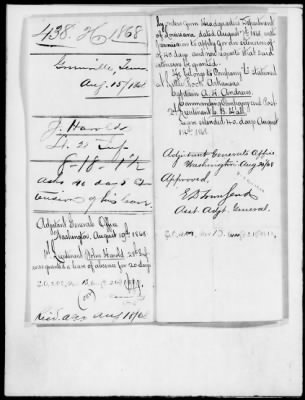 438. H 1868
Greenville, Tenn
Aug. 15/68
J. Harold
Lt. 28 Inf
asks 40 days ex
tension of his leave
Adjutant Generals Office
Washington, August 19th 1868
1st Lieutenant John Harold 28th Inf
was granted a leave of absence for 20 days
Recd. Aug 18/68
by orders from Headquarters Department
of Louisiana dated August 7th 1868 with
permission to apply for an extension of
40 days and now requests that said
extension be granted.
He belongs to Company stationed
at Little Rock Arkansas
Captain A. H. Andrews
Commanding Company and Post
2d Lieutenant B. Hall
Leave extended 40 days August
1868
Adjutant Generals Office
Washington Aug /68
Approved,
E D Townsend
Asst. Adjt. General.